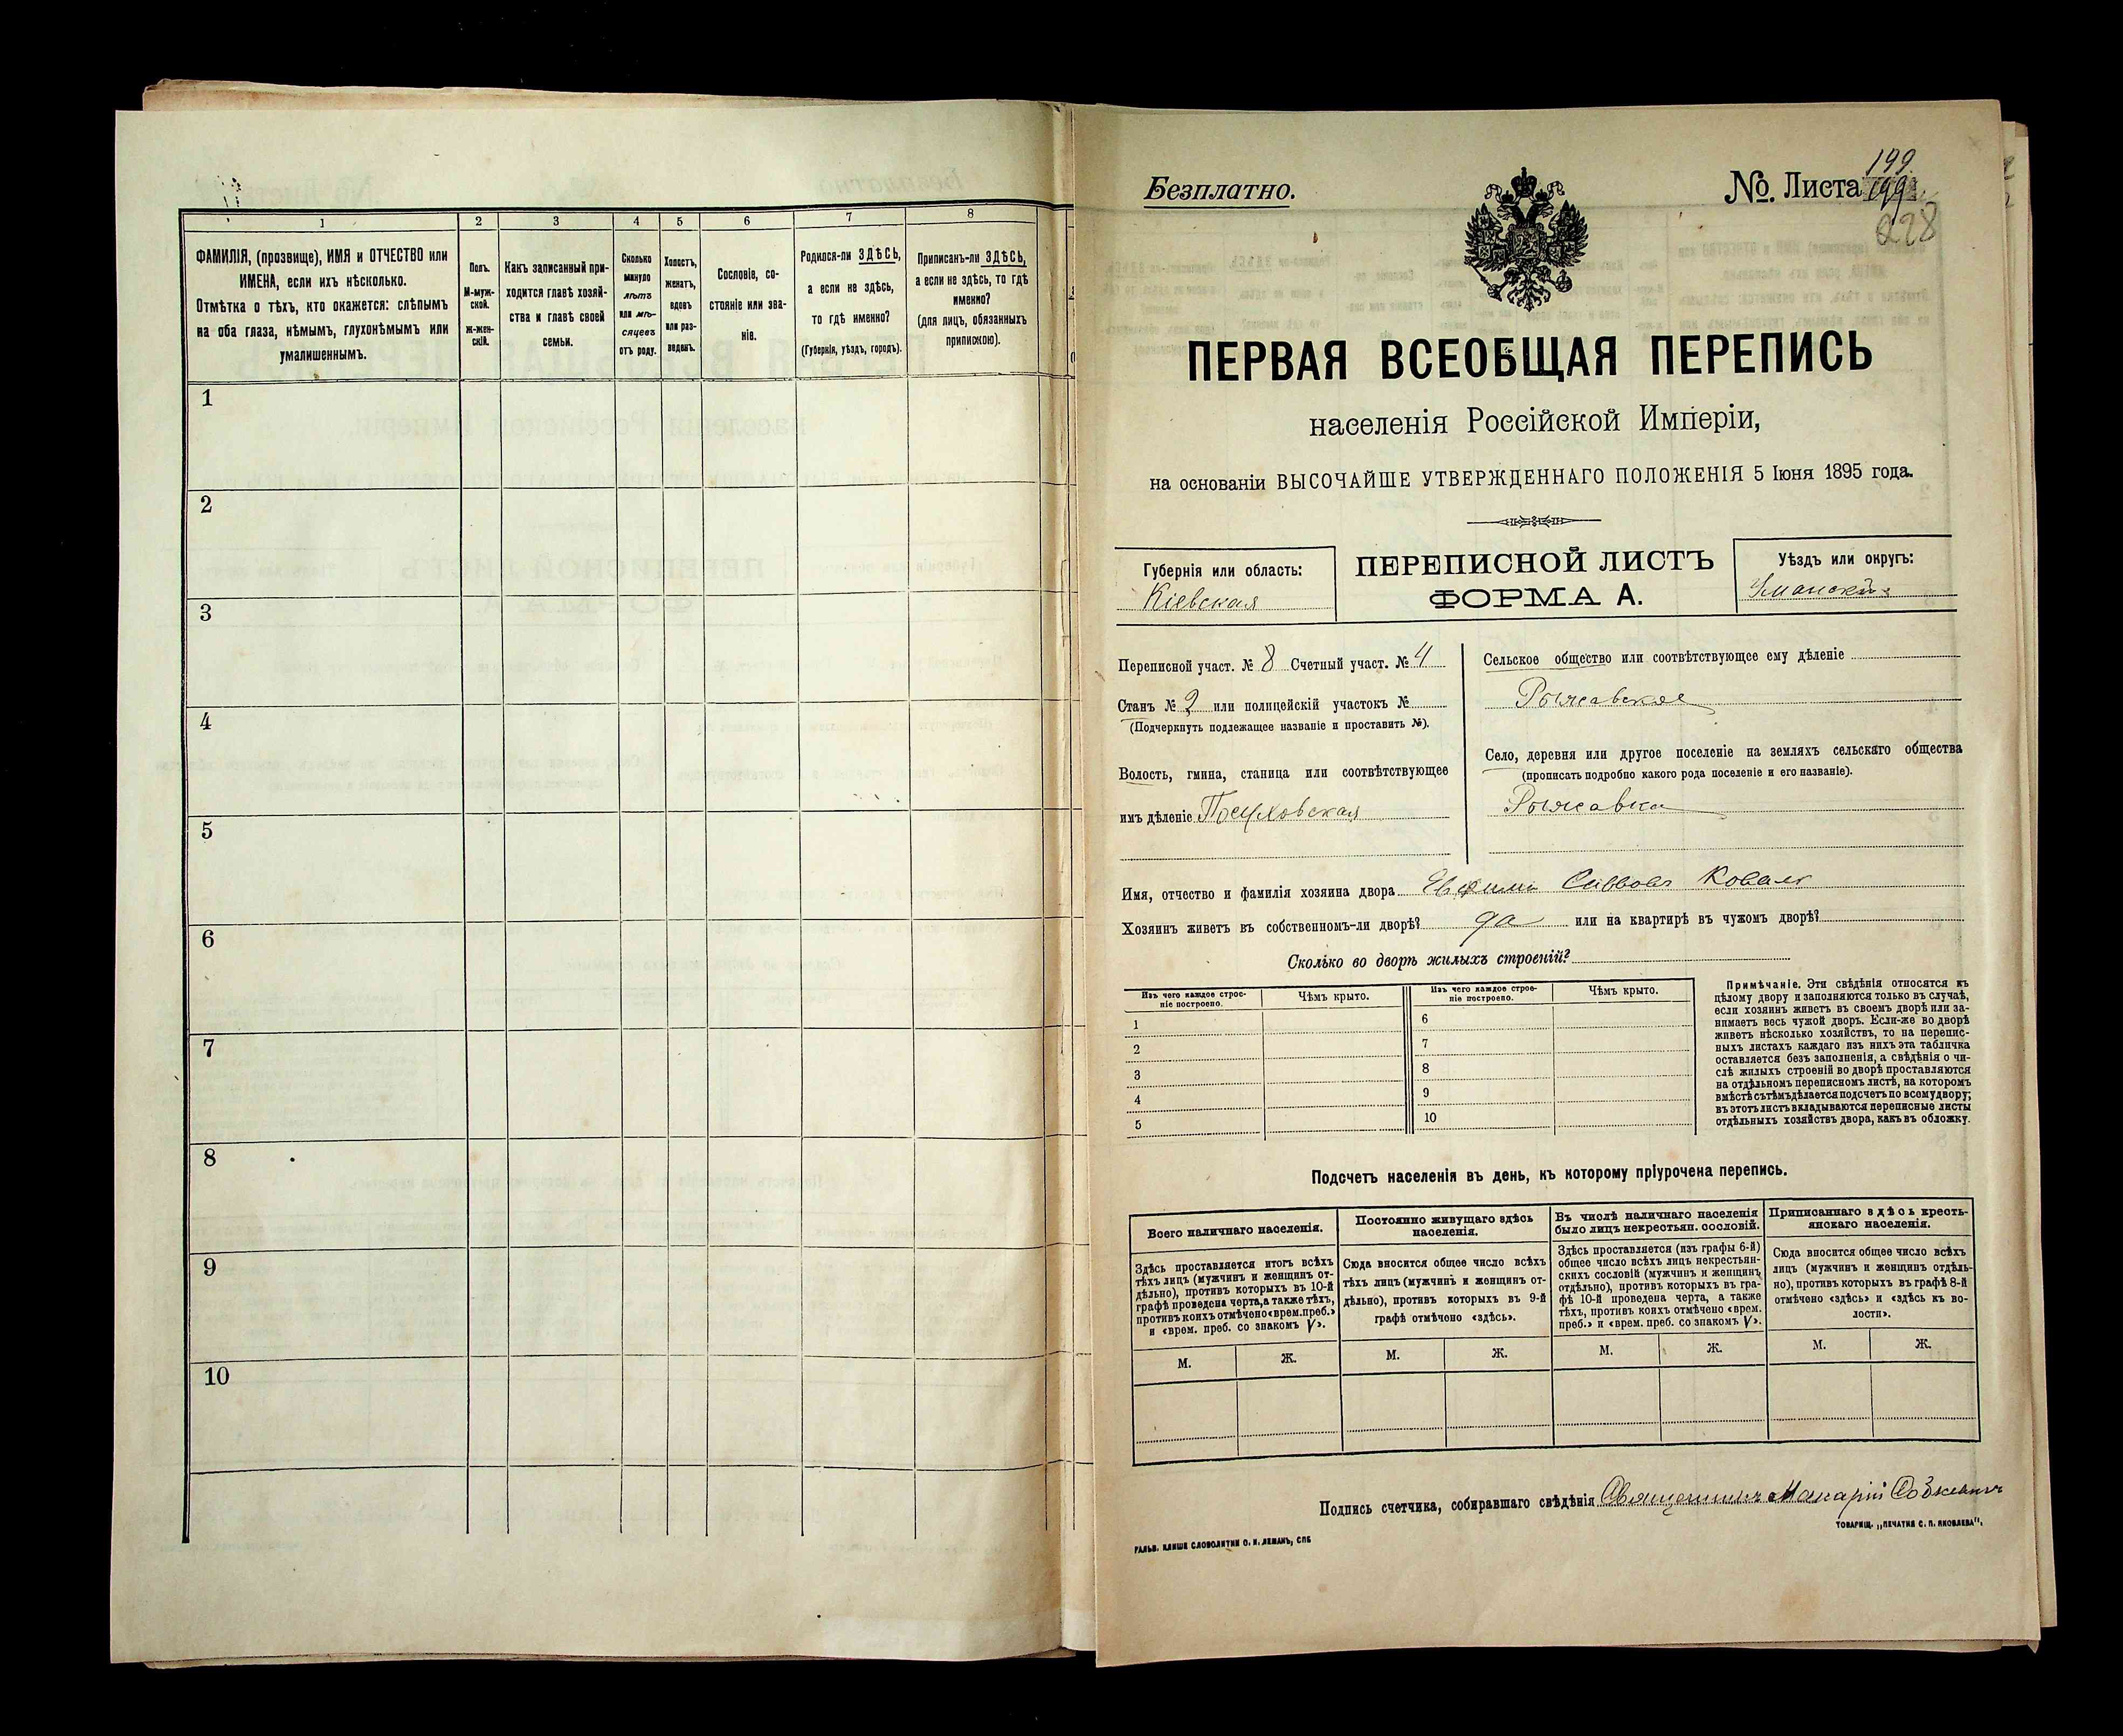 1
2
3
4
5
6
7
8
ФАМИЛІЯ, (прозвище), ИМЯ и ОТЧЕСТВО или
ИМЕНА, если ихъ нѣсколько.
Отмѣтка о тѣхъ, кто окажется: слѣпымъ
на оба глаза, нѣмымъ, глухонѣмымъ или
умалишеннымъ.
Полъ.
М-муж-
ской.
Ж-жен-
скій.
Какъ записанный при-
ходится главѣ хозяй-
ства и главѣ своей
семьи.
Сколько
минуло
лѣтъ
или мѣ-
сяцевъ
отъ роду.
Холостъ,
женатъ,
вдовъ
или раз-
веденъ.
Сословіе, со-
стояніе или зва-
ніе.
Родился-ли ЗДѢСЬ,
а если не здѣсь,
то гдѣ именно?
(Губернія, уѣздъ, городъ).
Приписанъ-ли ЗДѢСЬ,
а если не здѣсь, то гдѣ
именно?
(для лицъ, обязанныхъ
припискою).
1
2
3
4
5
6
7
8
9
10
Безплатно.
№. Листа 199
199
228
ПЕРВАЯ ВСЕОБЩАЯ ПЕРЕПИСЬ
населенія Россійской Имперіи,
на основаніи ВЫСОЧАЙШЕ УТВЕРЖДЕННАГО ПОЛОЖЕНІЯ 5 Іюня 1895 года.
Губернія или область:
Кіевская
ПЕРЕПИСНОЙ ЛИСТЪ
ФОРМА А.
Уѣздъ или округъ:
Уманскій
Переписной участ. № 8 Счетный участ. № 4
Станъ № 2 или полицейскій участокъ №
(Подчеркнуть подлежащее названіе и проставить №).
Волость, гмина, станица или соотвѣтствующее
имъ дѣленіе Посуховская
Сельское общество или соотвѣтствующее ему дѣленіе
Рыжавское
Село, деревня или другое поселеніе на земляхъ сельскаго общества
(прописать подробно какого рода поселеніе и его названіе).
Рыжавка
Имя, отчество и фамилія хозяина двора Евфимій Саввовъ Коваль
Хозяинъ живетъ въ собственномъ-ли дворѣ? да или на квартирѣ въ чужомъ дворѣ?
Сколько во дворѣ жилыхъ строеній?
Изъ чего каждое строе-
ніе построено.
Чѣмъ крыто.
Изъ чего каждое строе-
ніе построено.
Чѣмъ крыто.
1
2
3
4
5
6
7
8
9
10
Примѣчаніе. Эти свѣдѣнія относятся къ
цѣлому двору и заполняются только въ случаѣ,
если хозяинъ живетъ въ своемъ дворѣ или за-
нимаетъ весь чужой дворъ. Если-же во дворѣ
живетъ нѣсколько хозяйствъ, то на перепис-
ныхъ листахъ каждаго изъ нихъ эта табличка
оставляется безъ заполненія, а свѣдѣнія о чи-
слѣ жилыхъ строеній во дворѣ проставляются
на отдѣльномъ переписномъ листѣ, на которомъ
вмѣстѣ съ тѣмъ дѣлается подсчетъ по всему двору;
въ этотъ листъ вкладываются переписные листы
отдѣльныхъ хозяйствъ двора, какъ въ обложку.
Подсчетъ населенія въ день, къ которому пріурочена перепись.
Всего наличнаго населенія.
Здѣсь проставляется итогъ всѣхъ
тѣхъ лицъ (мужчинъ и женщинъ от-
дѣльно), противъ которыхъ въ 10-й
графѣ проведена черта, а также тѣхъ,
противъ коихъ отмѣчено «врем. преб.»
и «врем. преб. со знакомъ V».
Постоянно живущаго здѣсь
населенія.
Сюда вносится общее число всѣхъ
тѣхъ лицъ (мужчинъ и женщинъ от-
дѣльно), противъ которыхъ въ 9-й
графѣ отмѣчено «здѣсь».
Въ числѣ наличнаго населенія
было лицъ некрестьян. сословій.
Здѣсь проставляется (изъ графы 6-й)
общее число всѣхъ лицъ некрестьян-
скихъ сословій (мужчинъ и женщинъ
отдѣльно), противъ которыхъ въ гра-
фѣ 10-й проведена черта, а также
тѣхъ, противъ коихъ отмѣчено «врем.
преб.» и «врем. преб. со знакомъ V».
Приписаннаго здѣсь кресть-
янскаго населенія.
Сюда вносится общее число всѣхъ
лицъ (мужчинъ и женщинъ отдѣль-
но), противъ которыхъ въ графѣ 8-й
отмѣчено «здѣсь» и «здѣсь къ во-
лости».
М.
Ж.
М.
Ж.
М.
Ж.
М.
Ж.
Подпись счетчика, собиравшаго свѣдѣнія Священникъ Макарій Собкевичъ
ГАЛЬВ. КЛИШЕ СЛОВОЛИТНИ О. И. ЛЕМАНЪ, СПБ
ТОВАРИЩ. „ПЕЧАТНЯ С. П. ЯКОВЛЕВА".